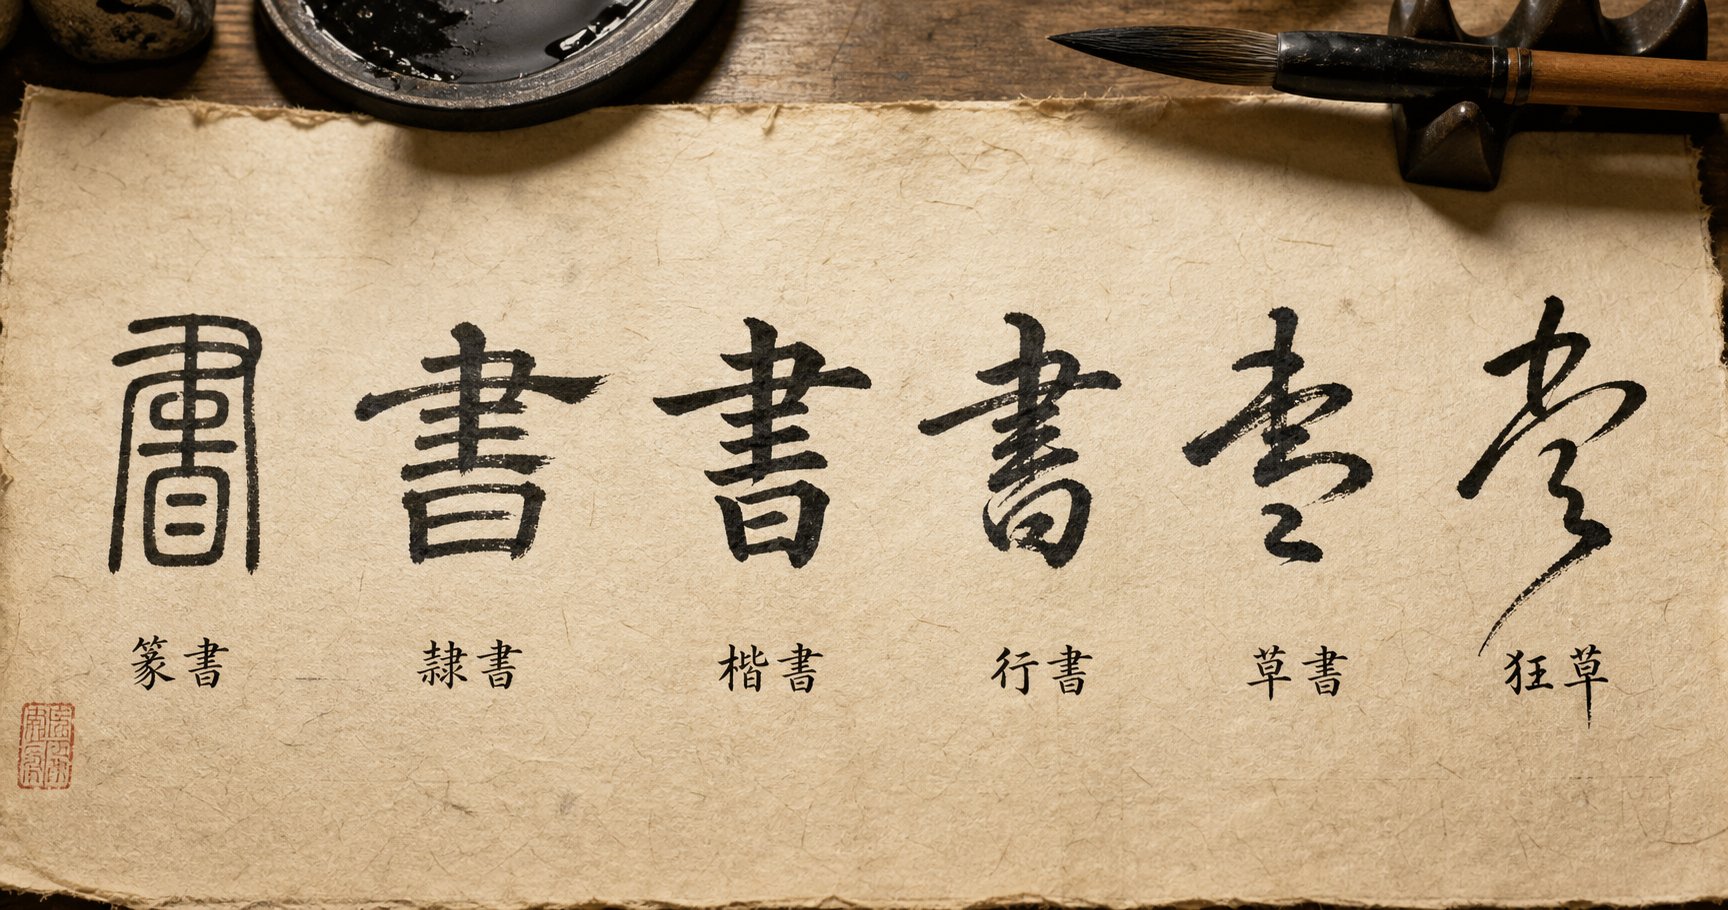 書 書 書 書 書 書
篆書 隸書 楷書 行書 草書 狂草